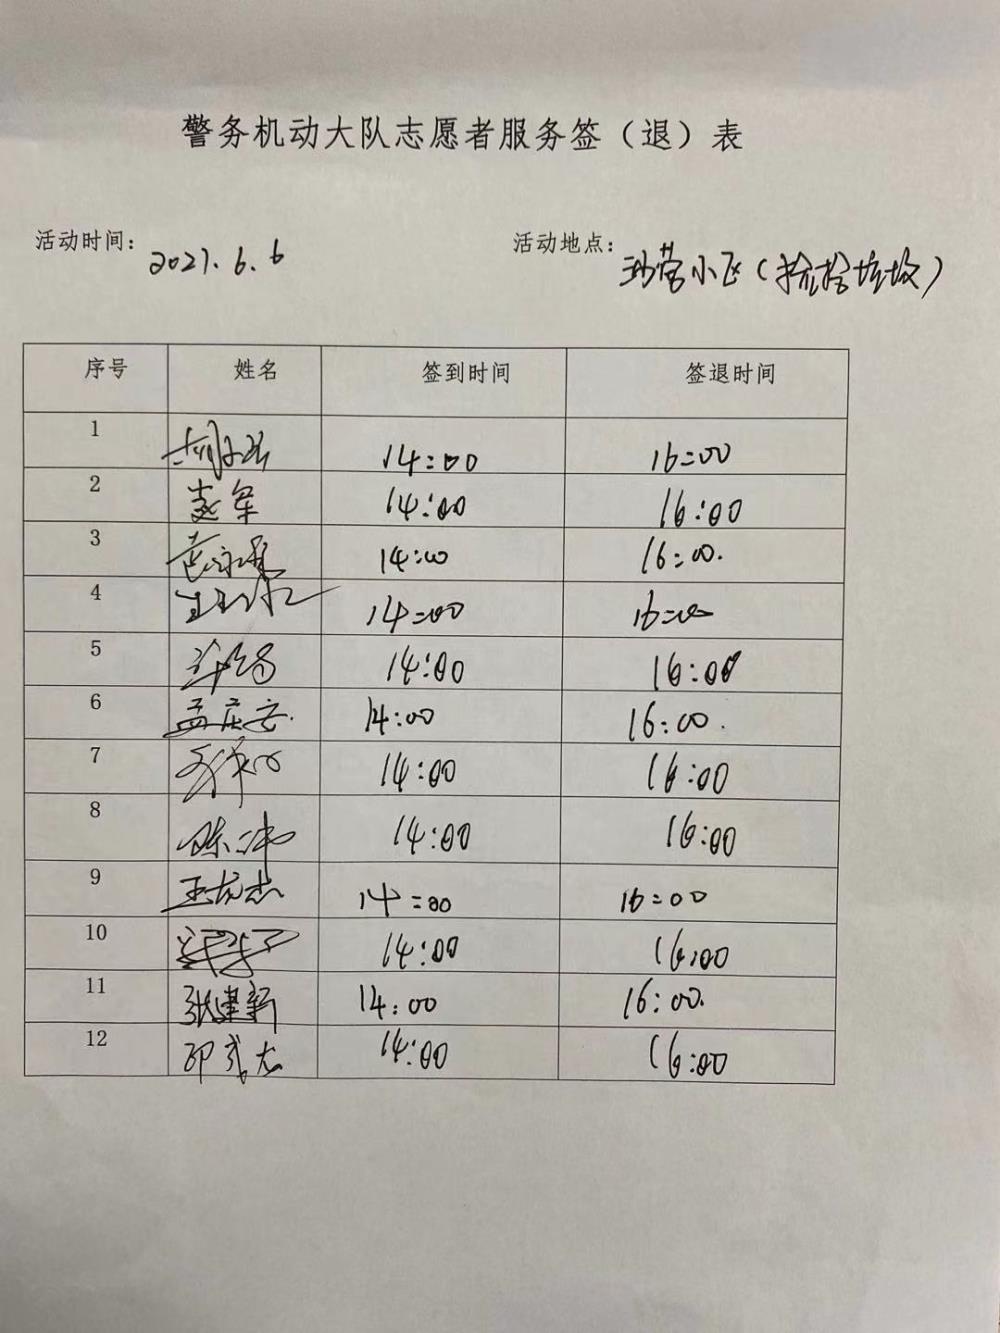 警务机动大队志愿者服务签（退）表
活动时间： 2021.6.6 活动地点： 小区（捡拾垃圾）
序号 姓名 签到时间 签退时间
1 14:00 16:00
2 赵军 14:00 16:00
3 14:00 16:00.
4 14:00 16:00
5 14:00 16:00
6 孟庆安. 14:00 16:00.
7 14:00 16:00
8 14:00 16:00
9 王龙杰 14:00 16:00
10 14:00 16:00
11 张建新 14:00 16:00.
12 14:00 16:00